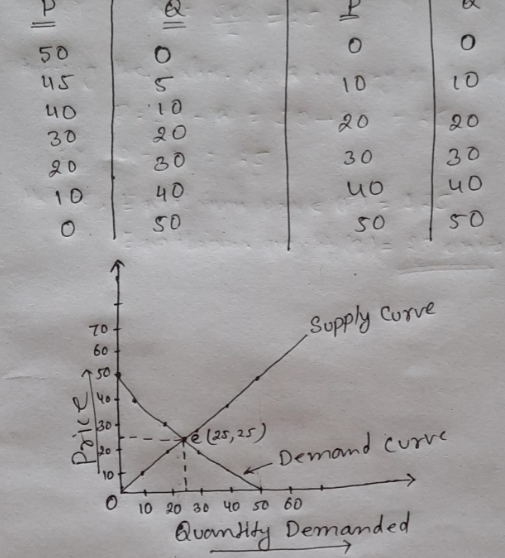 P Q P Q
50 0 0 0
45 5 10 10
40 10 20 20
30 20 30 30
20 30 40 40
10 40 50 50
0 50
70
60
50
40
30
20
10
Price
Supply Curve
e (25,25)
Demand Curve
0 10 20 30 40 50 60
Quantity Demanded